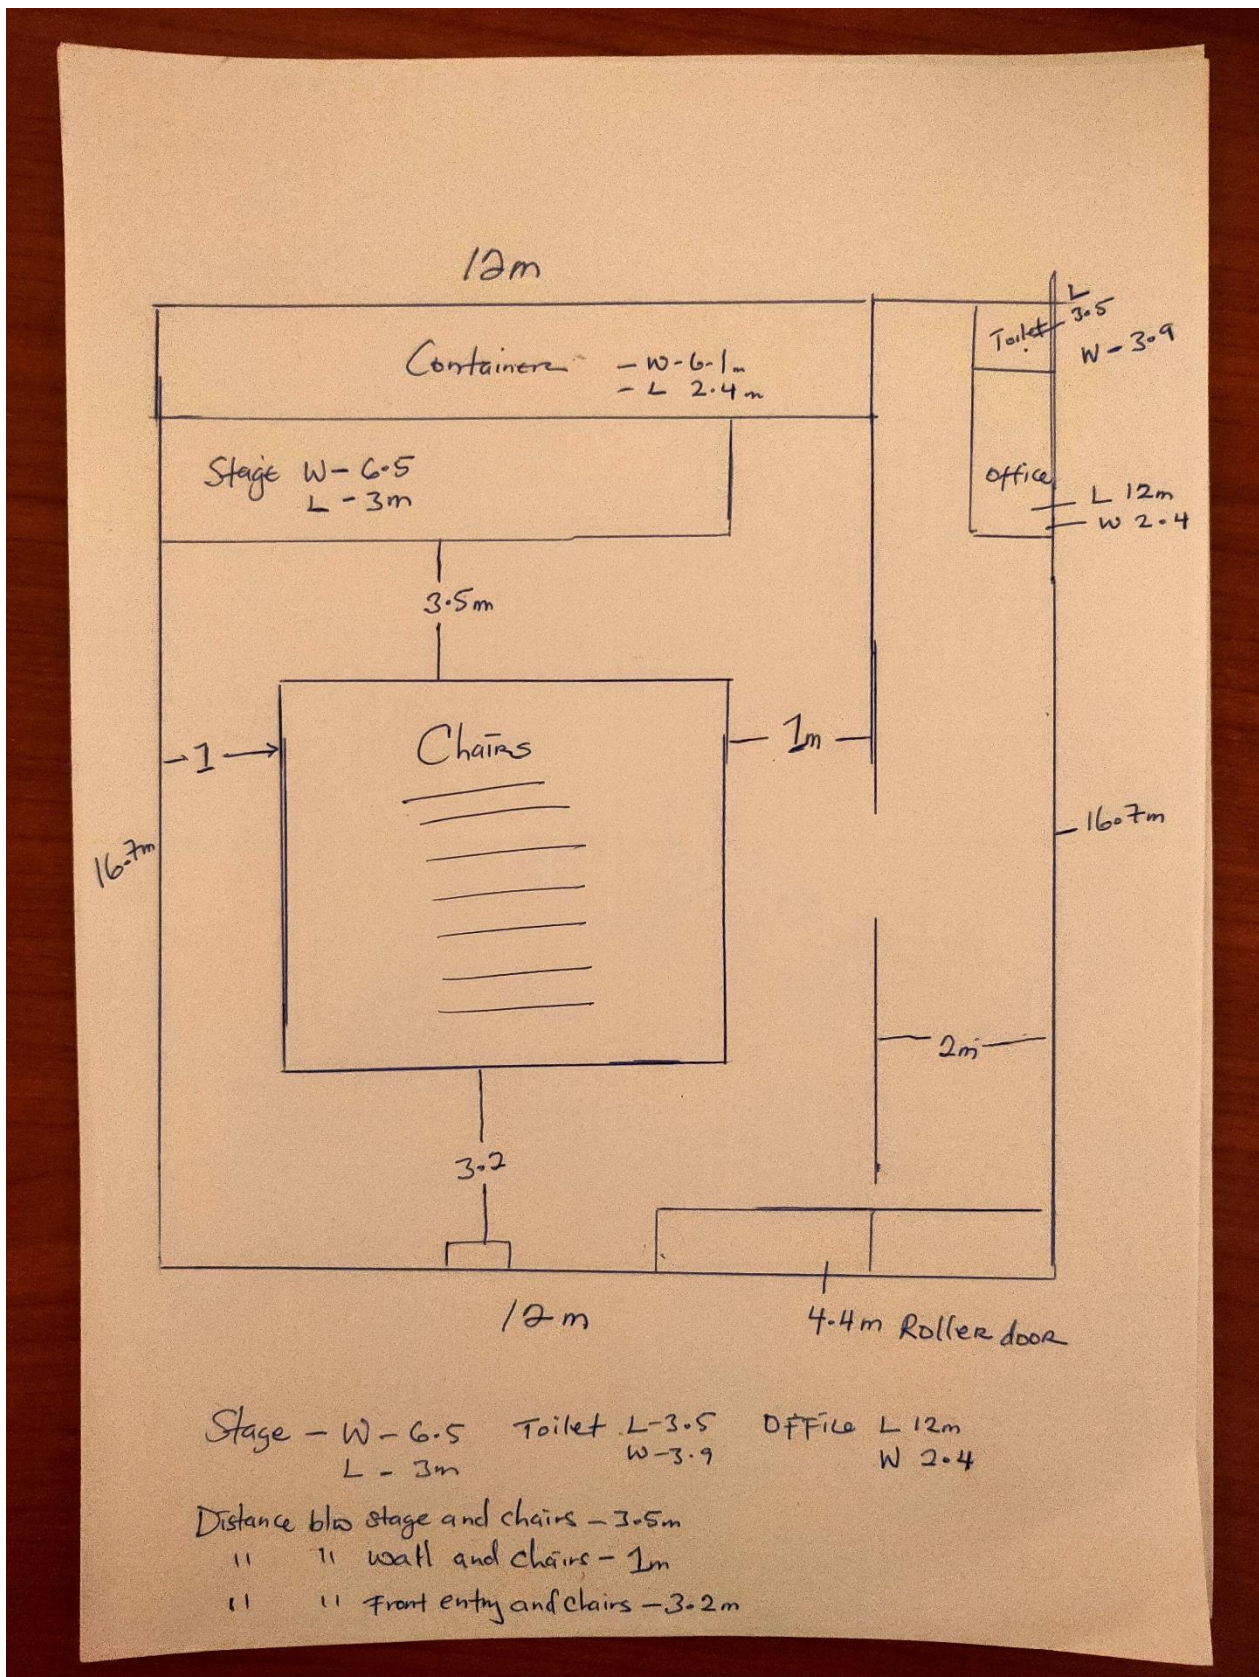 12m
Container - W-6.1m
- L 2.4m
Toilet
L
3.5
W-3.9
Stage W-6.5
L-3m
office
L 12m
W 2.4
3.5m
1
Chairs
1m
16.7m
16.7m
2m
3.2
12m
4.4m Roller door
Stage - W-6.5 Toilet L-3.5 OFFice L 12m
W-3.9 W 2.4
L - 3m
Distance b/w stage and chairs - 3.5m
" " wall and chairs - 1m
" " Front entry and chairs - 3.2m